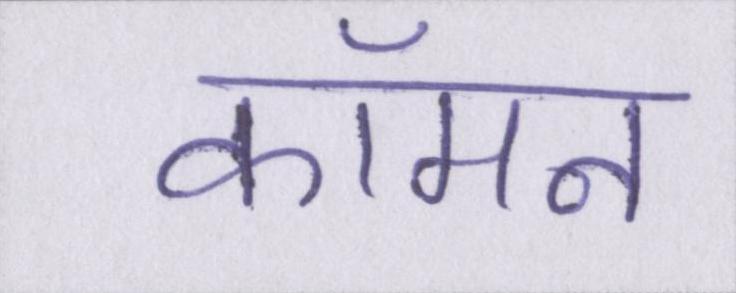 कॉमन